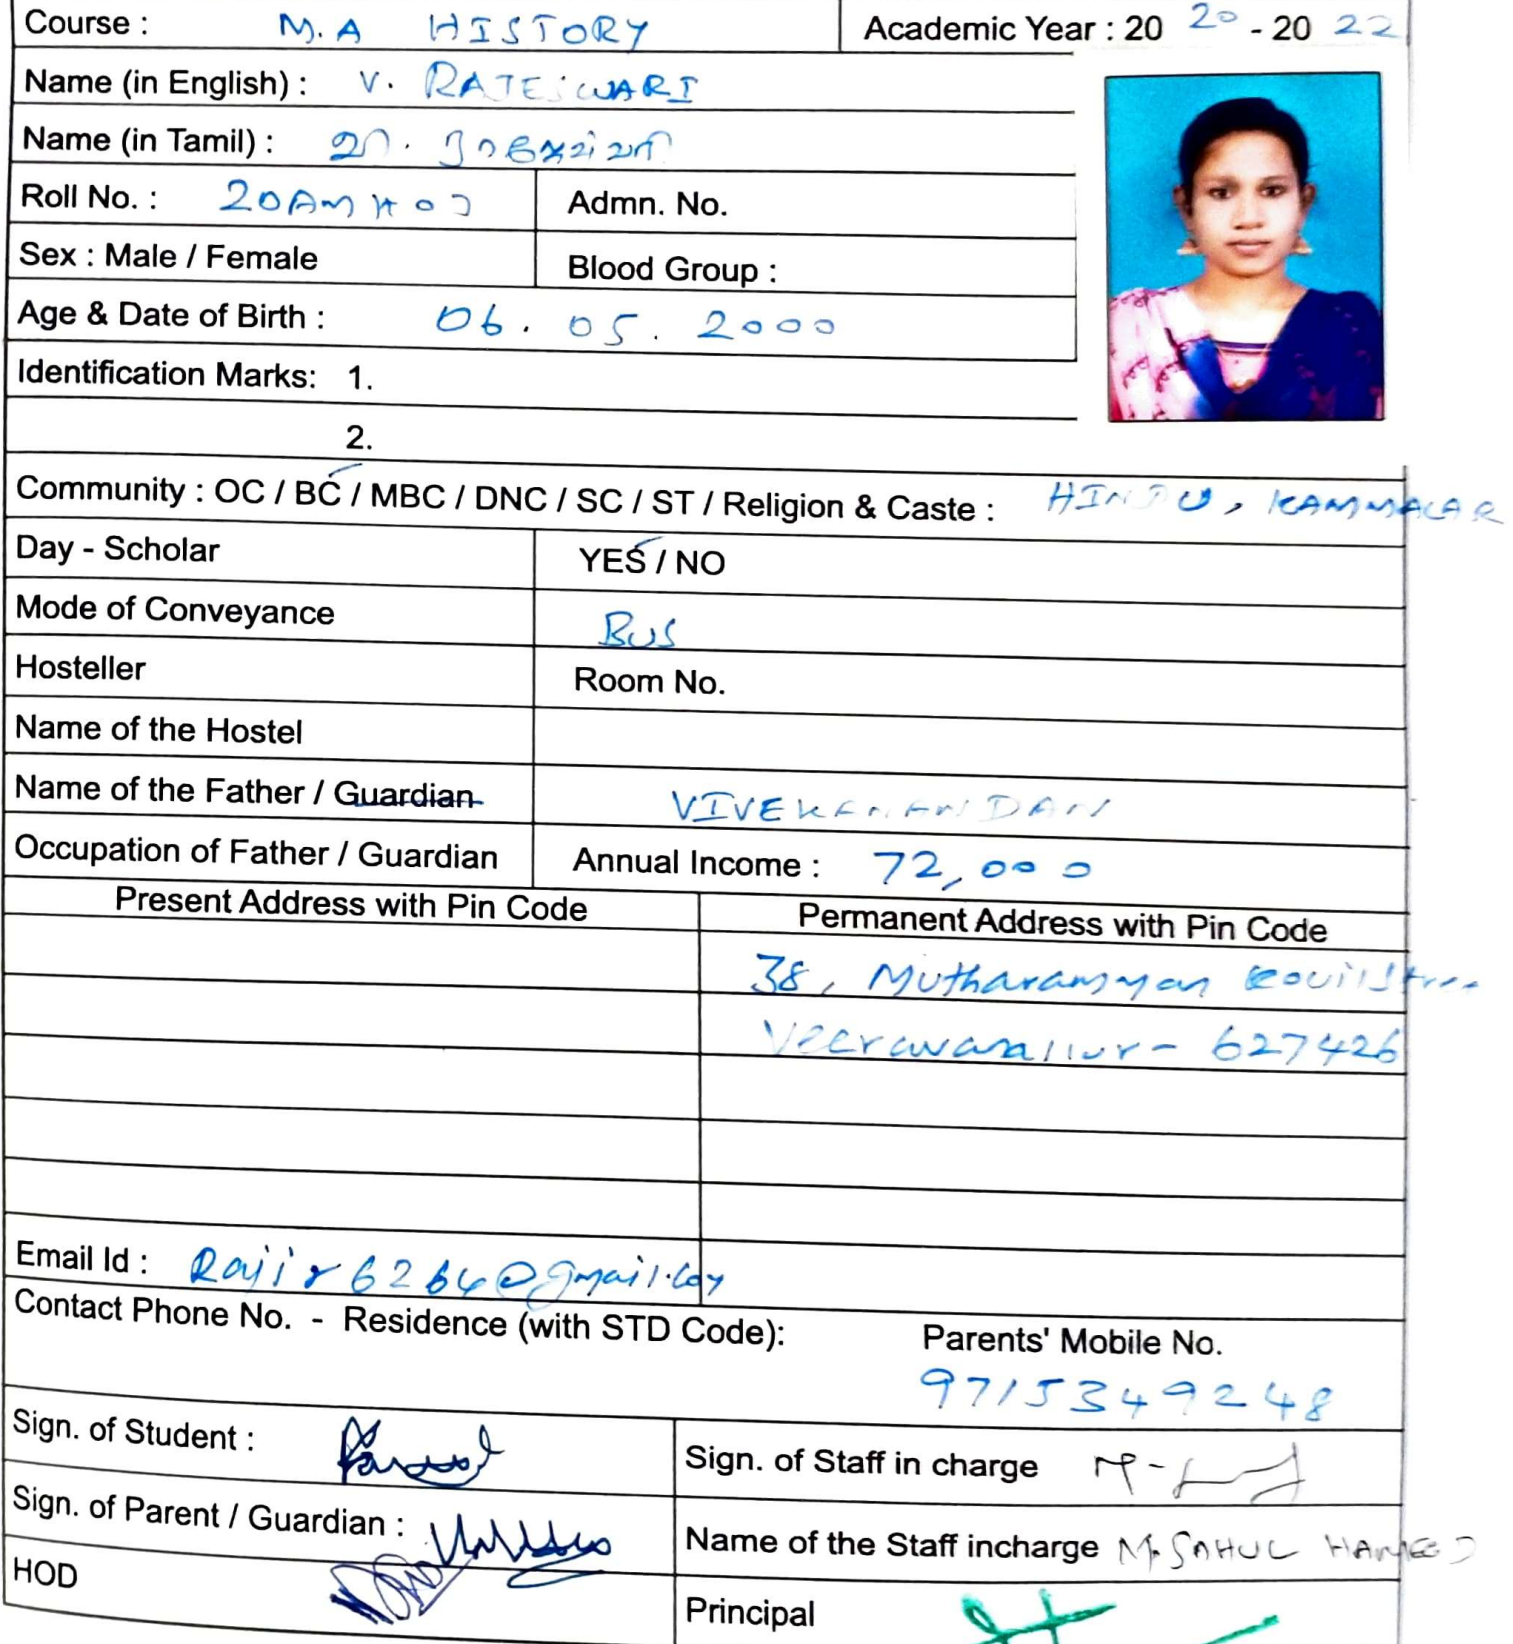 Course : M.A HISTORY Academic Year : 20 20 - 20 22
Name (in English) : V. RAJESWARI
Name (in Tamil) : வி. ராஜேஸ்வரி
Roll No. : 20AMH07 Admn. No.
Sex : Male / Female Blood Group :
Age & Date of Birth : 06. 05. 2000
Identification Marks: 1.
2.
Community : OC / BC / MBC / DNC / SC / ST / Religion & Caste : HINDU, KAMMALAR
Day - Scholar YES / NO
Mode of Conveyance BUS
Hosteller Room No.
Name of the Hostel
Name of the Father / Guardian VIVEKANANDAN
Occupation of Father / Guardian Annual Income : 72,000
Present Address with Pin Code Permanent Address with Pin Code
38, Mutharamman Kovil Stree
Veeravanallur - 627426
Email Id : Rajir6264@gmail.com
Contact Phone No. - Residence (with STD Code): Parents' Mobile No.
9715349248
Sign. of Student : Sign. of Staff in charge
Sign. of Parent / Guardian : Name of the Staff incharge M. SAHUL HAMEED
HOD Principal